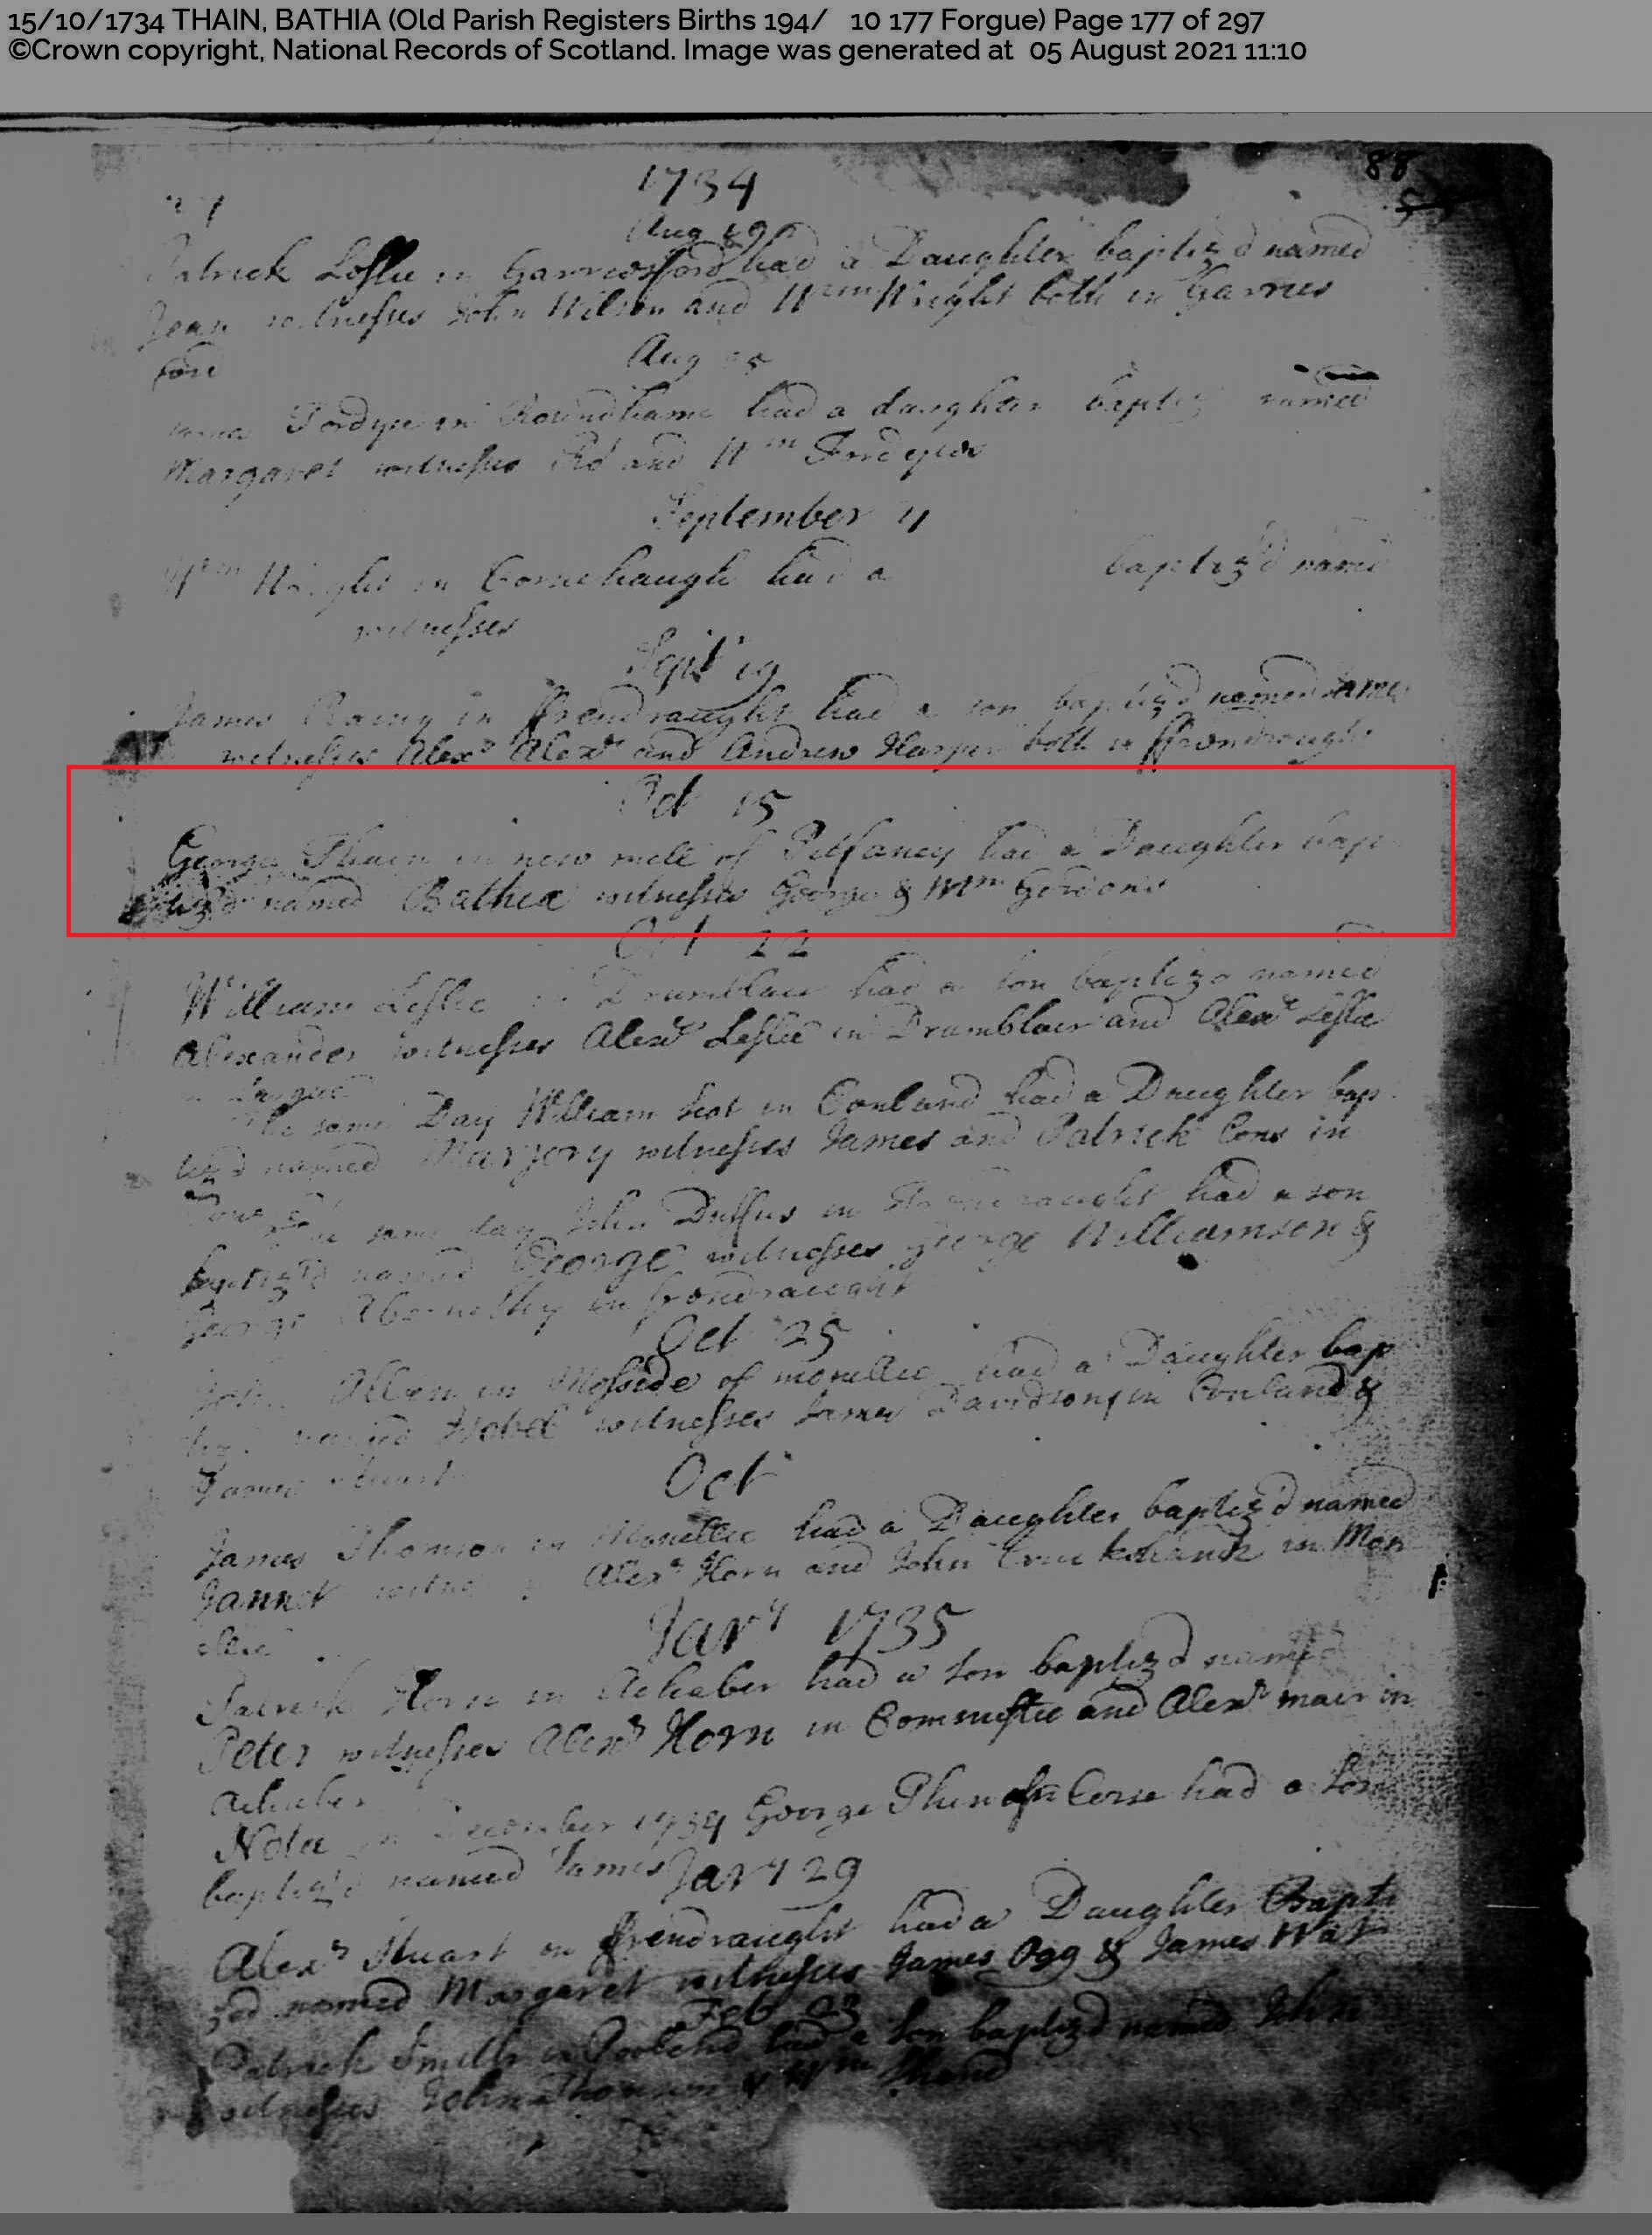 15/10/1734 THAIN, BATHIA (Old Parish Registers Births 194/ 10 177 Forgue) Page 177 of 297
©Crown copyright, National Records of Scotland. Image was generated at 05 August 2021 11:10
88
1734
Aug
Patrick Leslie in had a Daughter baptiz'd named
Jean witnesses John Wilson and Wm Wright both in Garries
ford
Aug
Fordyce in had a daughter baptiz named
Margaret witnesses and Wm Fordyce
September 11
Wm Wright in Corriehaugh had a baptiz'd named
witnesses
Sept 19
James in ffrendraught had a son baptiz'd named James
witnesses Alexr Alexr and Andrew Harper both in ffrendraught
Oct 15
George Thain in new mill of Pitfancy had a Daughter bap
tiz'd named Bathia witnesses George & Wm Gordons
Oct 22
William Leslie in Drumblair had a son baptizd named
Alexander witnesses Alexr Leslie in Drumblair and Alexr Leslie
The same Day William in Conland had a Daughter bap
tizd named Marjory witnesses James and Patrick Cons in
The same day John Duffus in had a son
baptiz'd named George witnesses George Williamson &
George Abernethy in frendraught
Oct 25
John Allan in Mosside of monellie had a Daughter bap
tiz named Isobel witnesses James Davidson in Conland &
James Stuart
Oct
James Thomson in Monellie had a Daughter baptiz'd named
Jannet Alexr Horn and John Cruickshank in Mon
ellie
Jary 1735
Patrick Horn in Achaber had a son baptizd named
Peter witnesses Alexr Horn in Commistie and Alexr mair in
Achaber
Nota in December 1734 George in Corse had a Son
baptiz'd named James
Jary 29
Alexr Stuart in frendraught had a Daughter Bapti
zed named Margaret witnesses James Ogg & James Wat
Feb 23
Patrick Smith in had a Son baptizd named John
witnesses John Thomson & Wm Shand